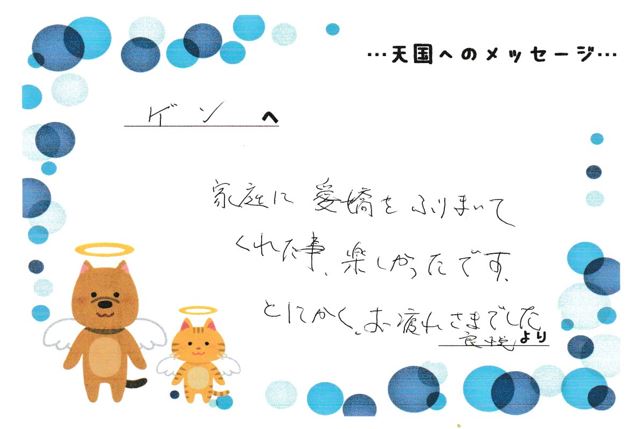 …天国へのメッセージ…
ゲンへ
家庭に愛嬌をふりまいて
くれた事、楽しかったです、
とにかく、お疲れさまでした
より